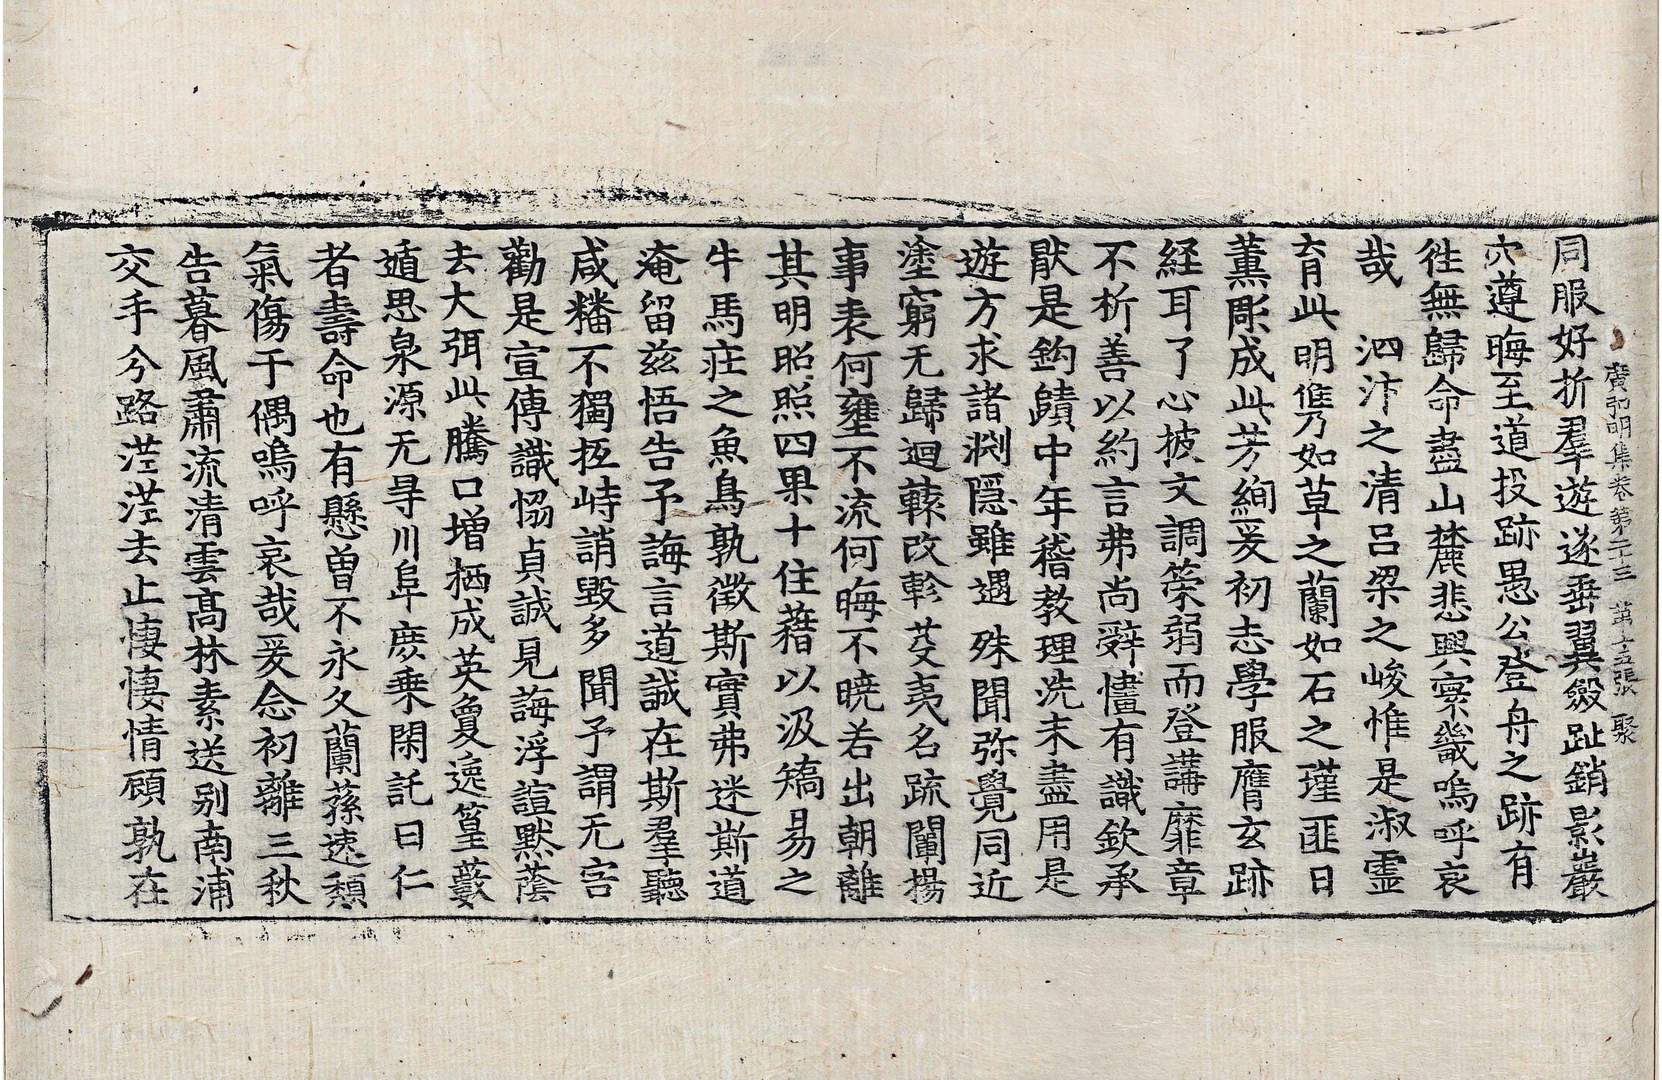 廣弘明集卷第二十三 第十五張 聚
同服好折羣遊遂垂翼斂趾銷影巖
穴遵晦至道投跡愚公登舟之跡有
徃無歸命盡山麓悲興寮畿嗚呼哀
哉 泗汴之清呂梁之峻惟是淑靈
育此明儁乃如草之蘭如石之瑾匪日
薰彫成此芳絢爰初志學服膺玄跡
経耳了心披文調筞弱而登講靡章
不析善以約言弗尚辭懂有識欽承
猒是鈎賾中年稽教理洗未盡用是
遊方求諸渊隠雖遇殊聞弥覺同近
塗窮无歸迴轅改軫芟夷名疏闡揚
事表何壅不流何晦不曉若出朝離
其明昭照四果十住藉以汲矯易之
牛馬莊之魚鳥孰徵斯實弗迷斯道
淹留茲悟告予誨言道誠在斯羣聽
咸播不獨抵峙誚毀多聞予謂无害
勸是宣傳識恊貞誠見誨浮諠默蔭
去大弭此騰口增栖成英敻逸篁藪
遁思泉源无㝵川阜庶乘閑託曰仁
者壽命也有懸曾不永久蘭蓀速頽
氣傷于偶嗚呼哀哉爰念初離三秋
告暮風肅流清雲髙林素送别南浦
交手分路茫茫去止悽悽情顧孰在